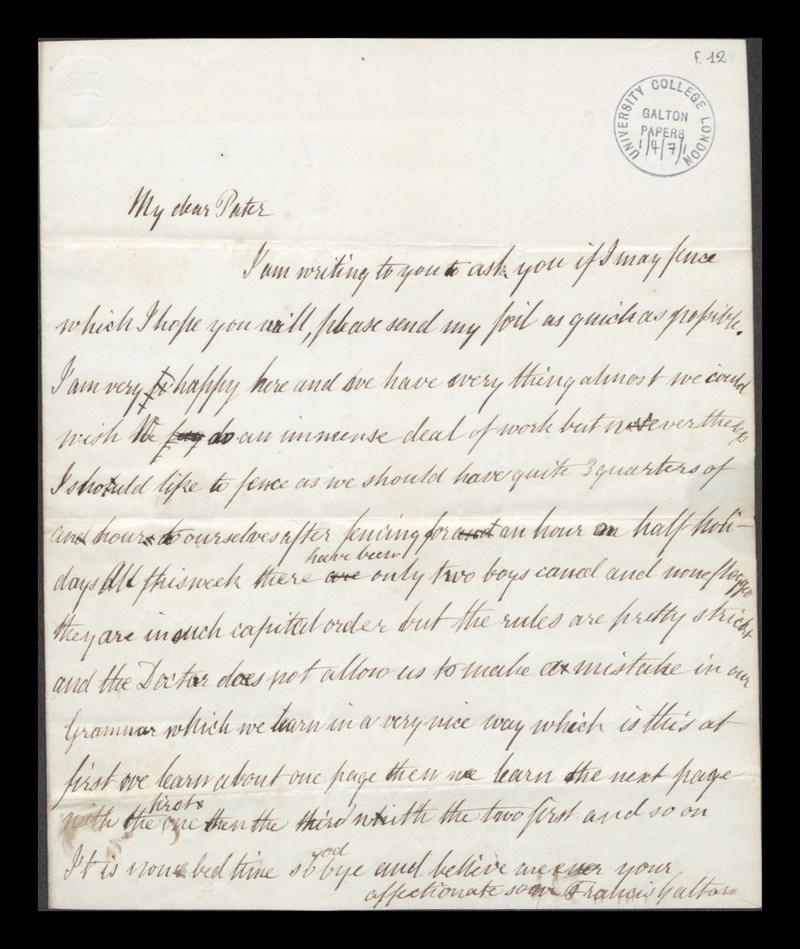 f. 12
UNIVERSITY COLLEGE LONDON
GALTON
PAPERS
1/4/7/1
My dear Pater
I am writing to you to ask you if I may fence
which I hope you will, please send my foil as quick as possible.
I am very happy here and we have every thing almost we could
wish We do an immense deal of work but nevertheless
I should like to fence as we should have quite 3 quarters of
an hour to ourselves after fencing for an hour on half holi-
days All this week there have been only two boys caned and none flogged
they are in such capital order but the rules are pretty strict
and the Doctor does not allow us to make a mistake in our
Grammar which we learn in a very nice way which is this at
first we learn about one page then we learn the next page
with the first one then the third with the two first and so on
It is now bed time so good bye and believe me ever your
affectionate son Francis Galton